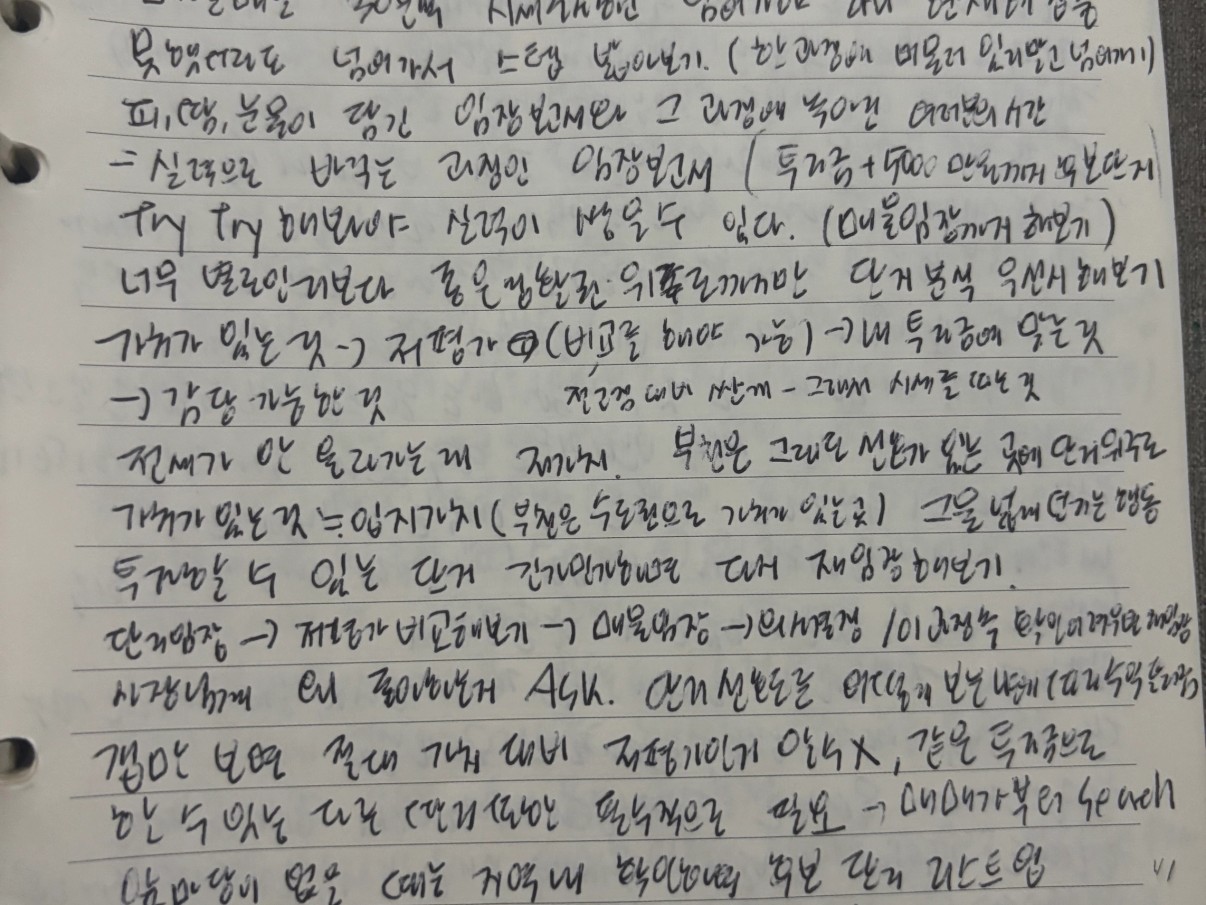 못했더라도 넘어가서 스텝 밟아보기. (한 과정에 머물러 있지말고 넘어가기)
피, 땀, 눈물이 담긴 임장보고서와 그 과정에 녹아든 여러분의 시간
= 실력으로 바꾸는 과정인 임장보고서 (투자금 + 5000만원까지 후보단지
try try 해봐야 실력이 쌓을 수 있다. (매물임장까지 해보기)
너무 별로인지보다 좋은 생활권 위주로까지만 단지 분석 우선시 해보기
가치가 있는 것 -> 저평가 (비교를 해야 가능) -> 내 투자금에 맞는 것
-> 감당 가능한 것 전고점 대비 싼게 - 그래서 시세를 따는 것
전세가 안 올라가는데 저가치. 부천은 그래도 선호가 있는 곳에 단지위주로
가치가 있는 것 ≒ 입지가치 (부천은 수도권으로 가치가 있는곳) 그물 넓게 던지는 행동
투자할 수 있는 단지 긴가민가하면 다시 재임장 해보기.
단지임장 -> 저평가 비교해보기 -> 매물임장 -> 의사결정 / 이 과정 속 확인이 어려우면 재임장
사장님께 왜 좋아하는지 ASK. 단지 선호도를 어떻게 보느냐에 따라 수익률
갭만 보면 절대 가치 대비 저평가인지 알 수 X, 같은 투자금으로
할 수 있는 다른 단지 또한 필수적으로 필요 -> 매매가부터 Search
앞마당이 없을 때는 지역내 확인하며 후보 단지 리스트업